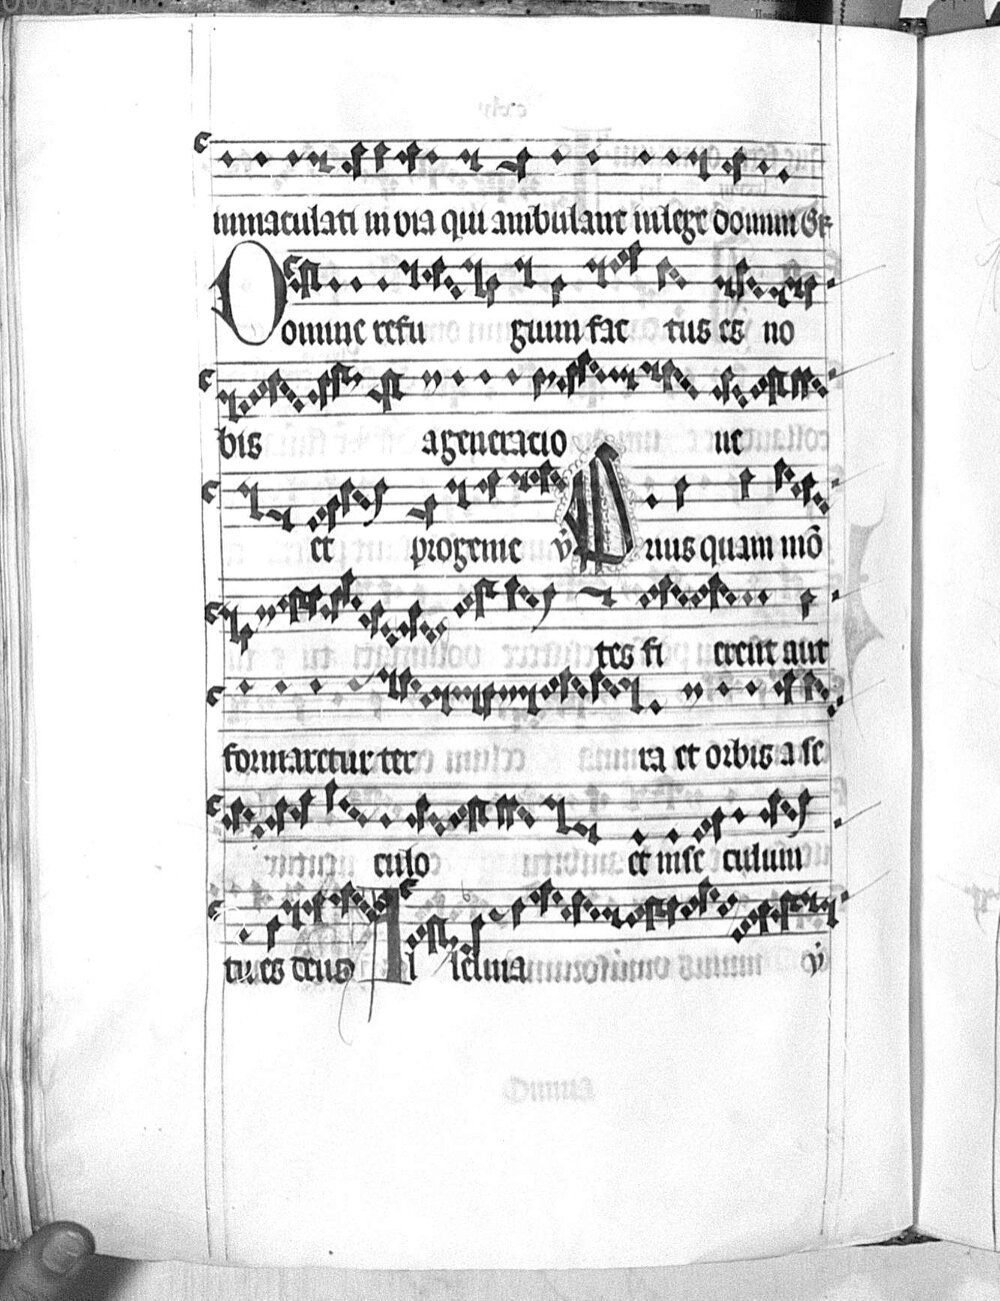 inmaculati in via qui ambulant in lege domini Gr
Domine refu gium fac tus es no
bis a generacio ne
et progenie v Prius quam mo̅
tes fi erent aut
formaretur ter ra et orbis a se
culo et in se culum
tu es deus Al leluia v